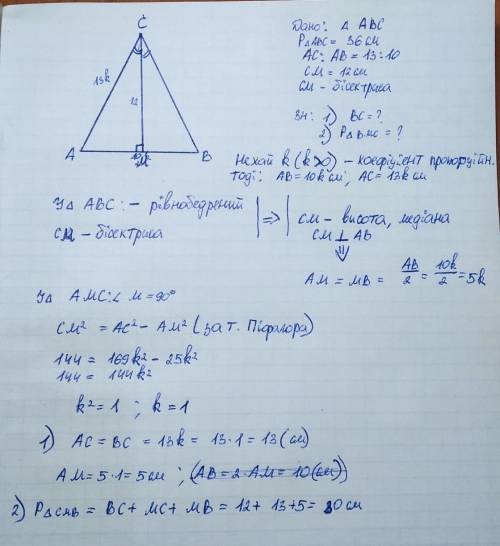 C
13k
12
A
B
10k
M
Дано: Δ ABC
PΔABC = 36 см
AC: AB = 13:10
CM = 12 см
CM - бісектриса
Зн: 1) BC = ?
2) PΔBMC = ?
Нехай k (k>0) - коефіцієнт пропорційн.
тоді: AB = 10k см; AC = 13k см
У Δ ABC: - рівнобедрений
CM - бісектриса
=>
CM - висота, медіана
CM ⊥ AB
⇓
AM = MB = AB/2 = 10k/2 = 5k
У Δ AMC: ∠ M = 90°
CM² = AC² - AM² (за т. Піфагора)
144 = 169k² - 25k²
144 = 144k²
k² = 1 ; k = 1
1) AC = BC = 13k = 13·1 = 13 (см)
AM = 5·1 = 5 см ; (AB = 2·AM = 10 (см))
2) PΔCMB = BC + MC + MB = 12 + 13 + 5 = 30 см